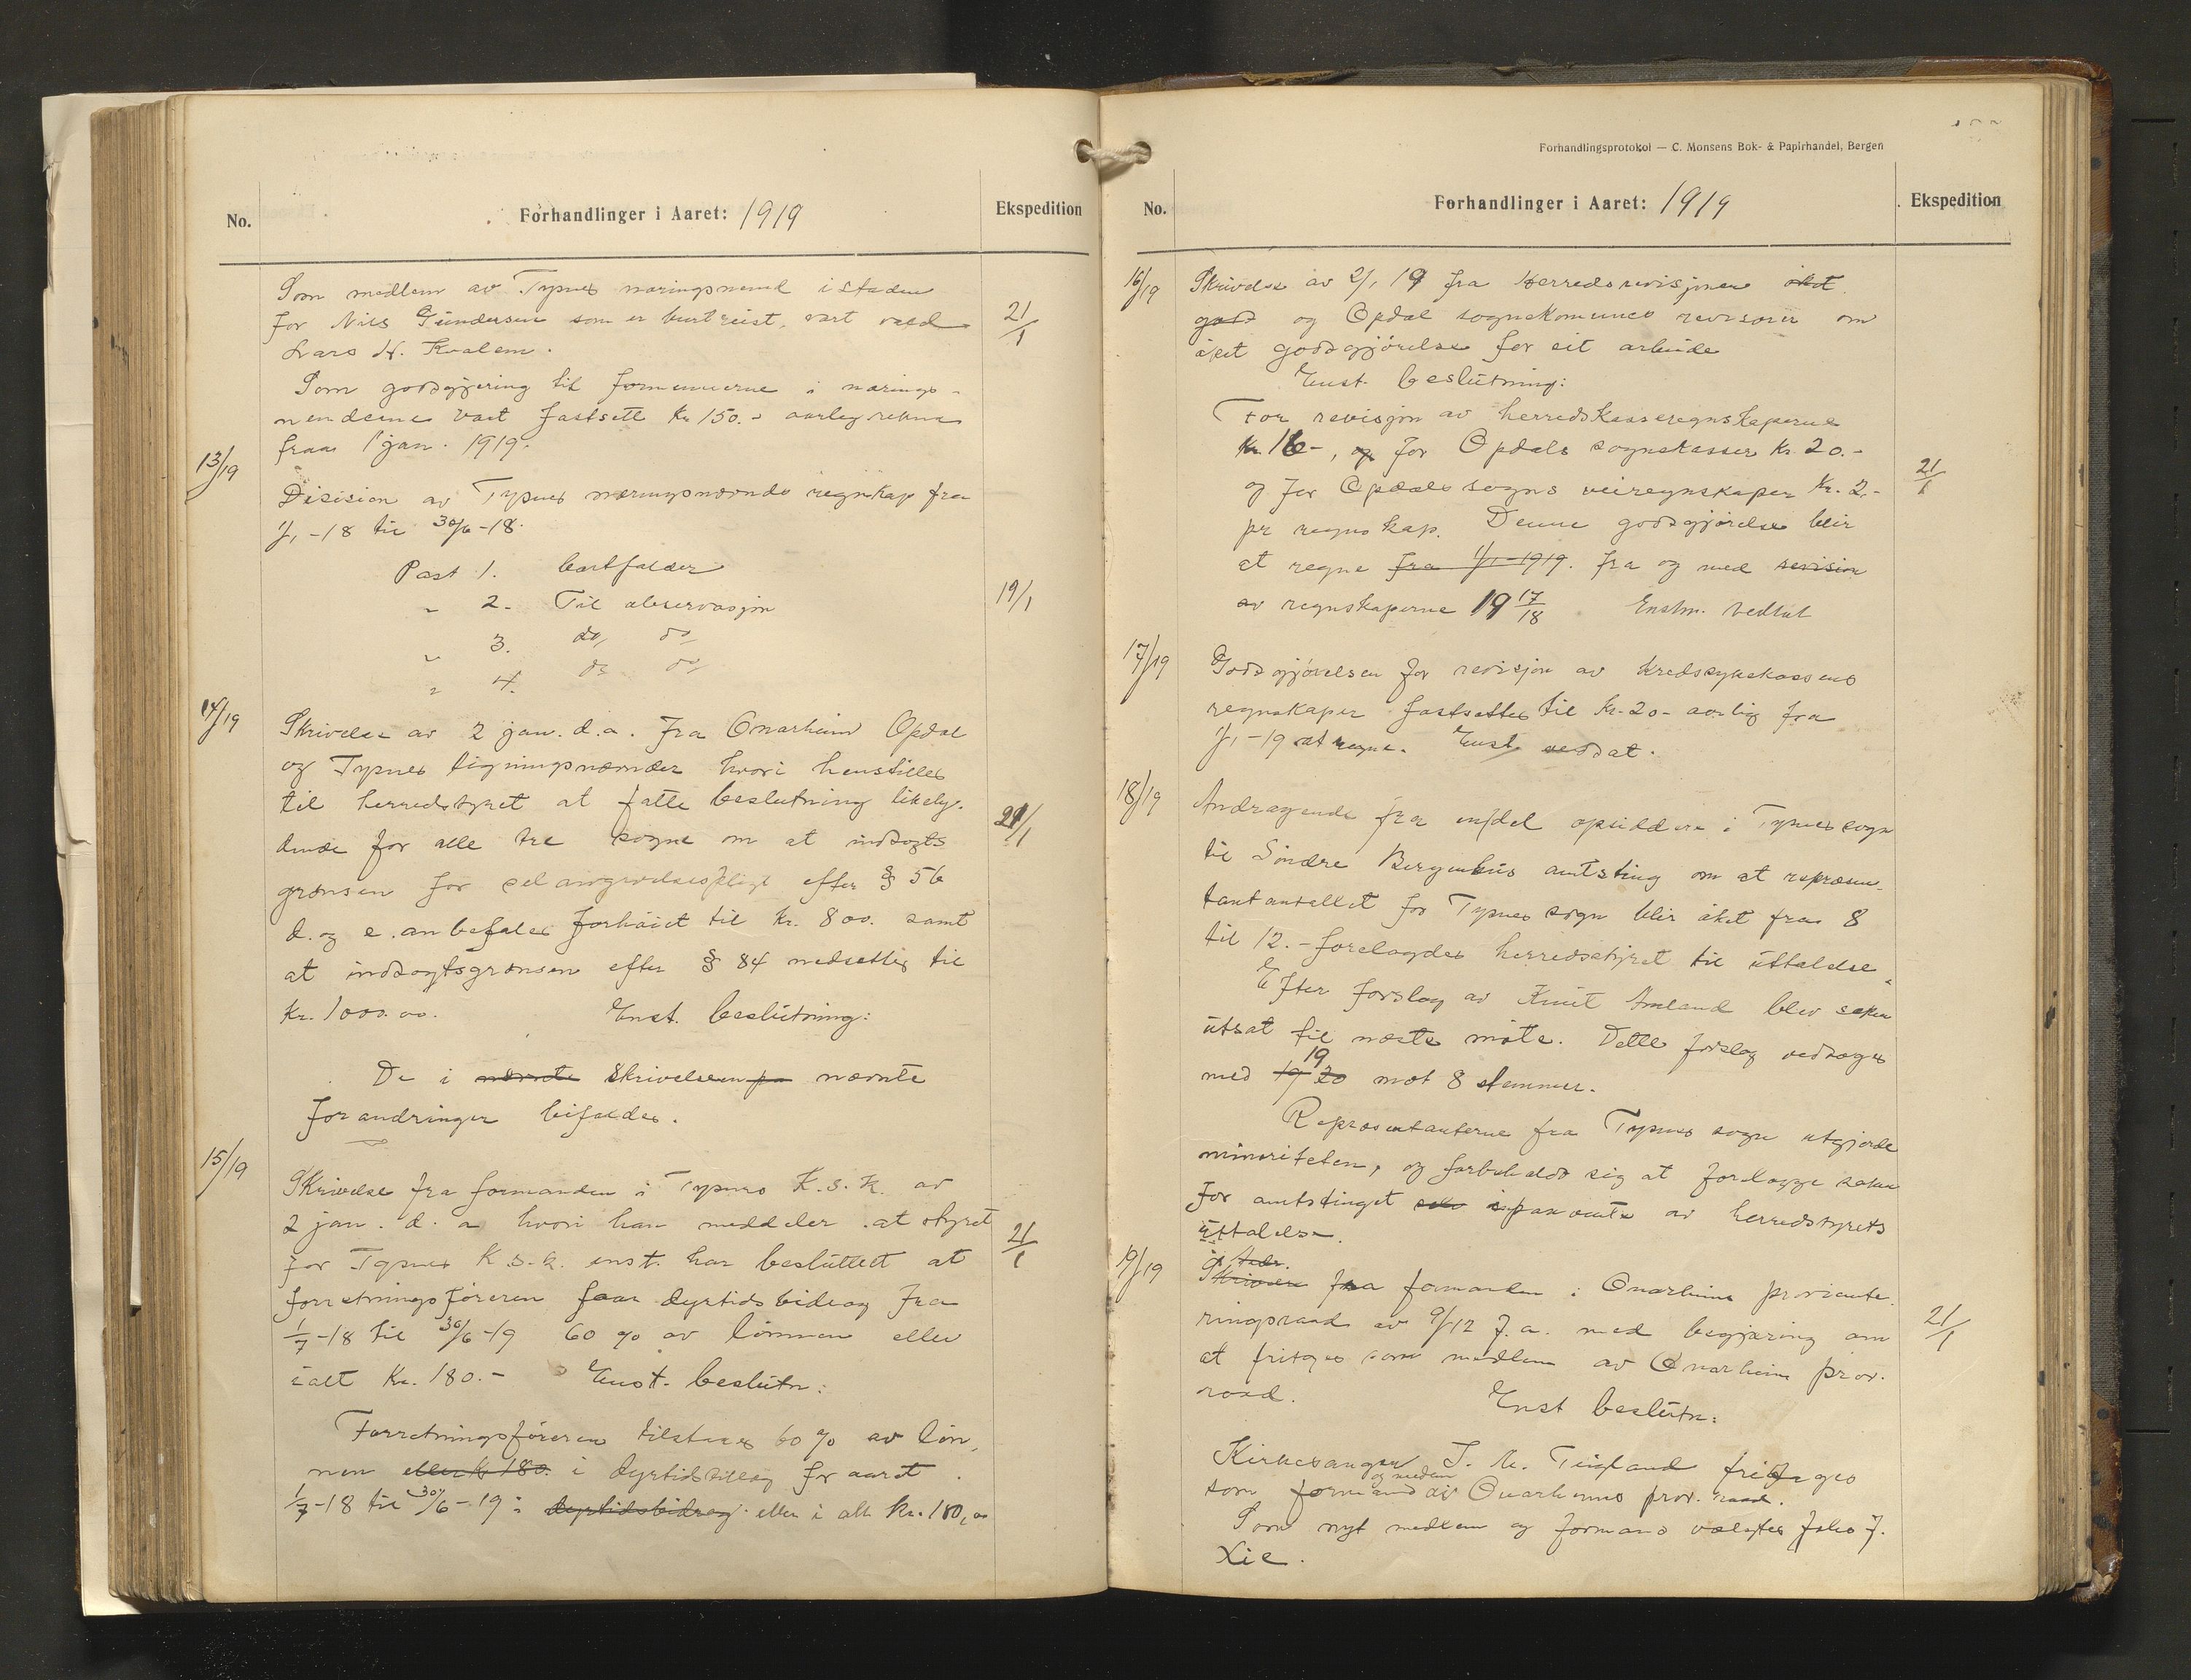 No.
Forhandlinger i Aaret: 1919
Ekspedition
Som medlem av Tysnes næringsnemd istaden
for Nils Gundersen som er burtreist, vart vald
21/1
Lars N. Kvalem.
Som godgjering til formennerne i nærings-
nemderne vart fastsett kr 150.- aarleg rekna
fraa 1 jan. 1919.
13/19
Desision av Tysnes næringsnævnds regnskap fra
1/1 -18 til 30/6 -18.
Post 1. bortfalder
" 2. Til observasjon
19/1
" 3. do, do,
" 4. do do,
14/19
Skrivelse av 2 jan. d.a. fra Onarheim Opdal
og Tysnes ligningsnævnder hvori henstilles
til herredstyret at fatte beslutning likely-
dende for alle tre sogne om at indtægts
21/1
grænsen for selangivelsespligt efter § 56
d. og e. anbefales forhöiet til kr. 800. samt
at indtægtsgrænsen efter § 84 nedsettes til
kr. 1000.00. Enst. beslutning:
De i nævnte skrivelsen paa nævnte
forandringer bifaldes.
15/19
Skrivelse fra formanden i Tysnes K.S.K. av
2 jan. d. a hvori han meddeler at styret
21/1
for Tysnes K.S.K. enst. har besluttet at
forretningsföreren faar dyrtidsbidrag fra
1/7 -18 til 30/6 -19 60 % av lönnen eller
ialt Kr. 180.- Enst. beslutn:
Forretningsföreren tilstaaes 60 % av lön,
nen eller kr 180. i dyrtidstillæg for aaret
1/7 -18 til 30/6 -19 i dyrtidsbidrag eller i alt kr. 180,00
Forhandlingsprotokol — C. Monsens Bok- & Papirhandel, Bergen
No.
Forhandlinger i Aaret: 1919
Ekspedition
16/19
Skrivelse av 2/1 19 fra Herredsrevisjonen öket
god og Opdal sognekommunes revisorer om
öket godtgjörelse for sit arbeide
Enst. beslutning:
For revisjon av herredskasseregnskaperne
kr. 16-, og for Opdals sognekasser kr. 20.-
21/1
og for Opdals sogns veiregnskaper kr. 2.-
pr regnskap. Denne godtgjörelse blir
at regne fra 1/1 -1919. fra og med revision
av regnskaperne 19 17/18 Enstm. vedtat
17/19
Godtgjörelsen for revisjon av kredssykekassens
regnskaper fastsettes til kr. 20- aarlig fra
1/1 -19 at regne. Enst vedtat.
18/19
Andragende fra endel opsiddere i Tysnes sogn
til Söndre Bergenhus amtsting om at repræsen-
tantantallet for Tysnes sogn blir öket fra 8
til 12.- forelagdes herredstyret til uttalelse.
Efter forslag av Knut Amland blev saken
utsat til næste möte. Dette forslag vedtoges
med 19 20 19 mot 8 stemmer.
Repræsentanterne fra Tysnes sogn utgjorde
minoriteten, og forbeholdt sig at forelægge saken
for amtstinget i paavente av herredstyrets
uttalelse.
19/19
Skrivelse fra formanden i Onarheim proviante-
ringsraad av 9/12 f.a. med begjæring om
21/1
at fritages som medlem av Onarheim prov.
raad. Enst beslutn:
Kirkesanger fritages
og medlem
som formand av Onarheims prov. raad.
Som nyt medlem og formand valgtes J.
Lie.